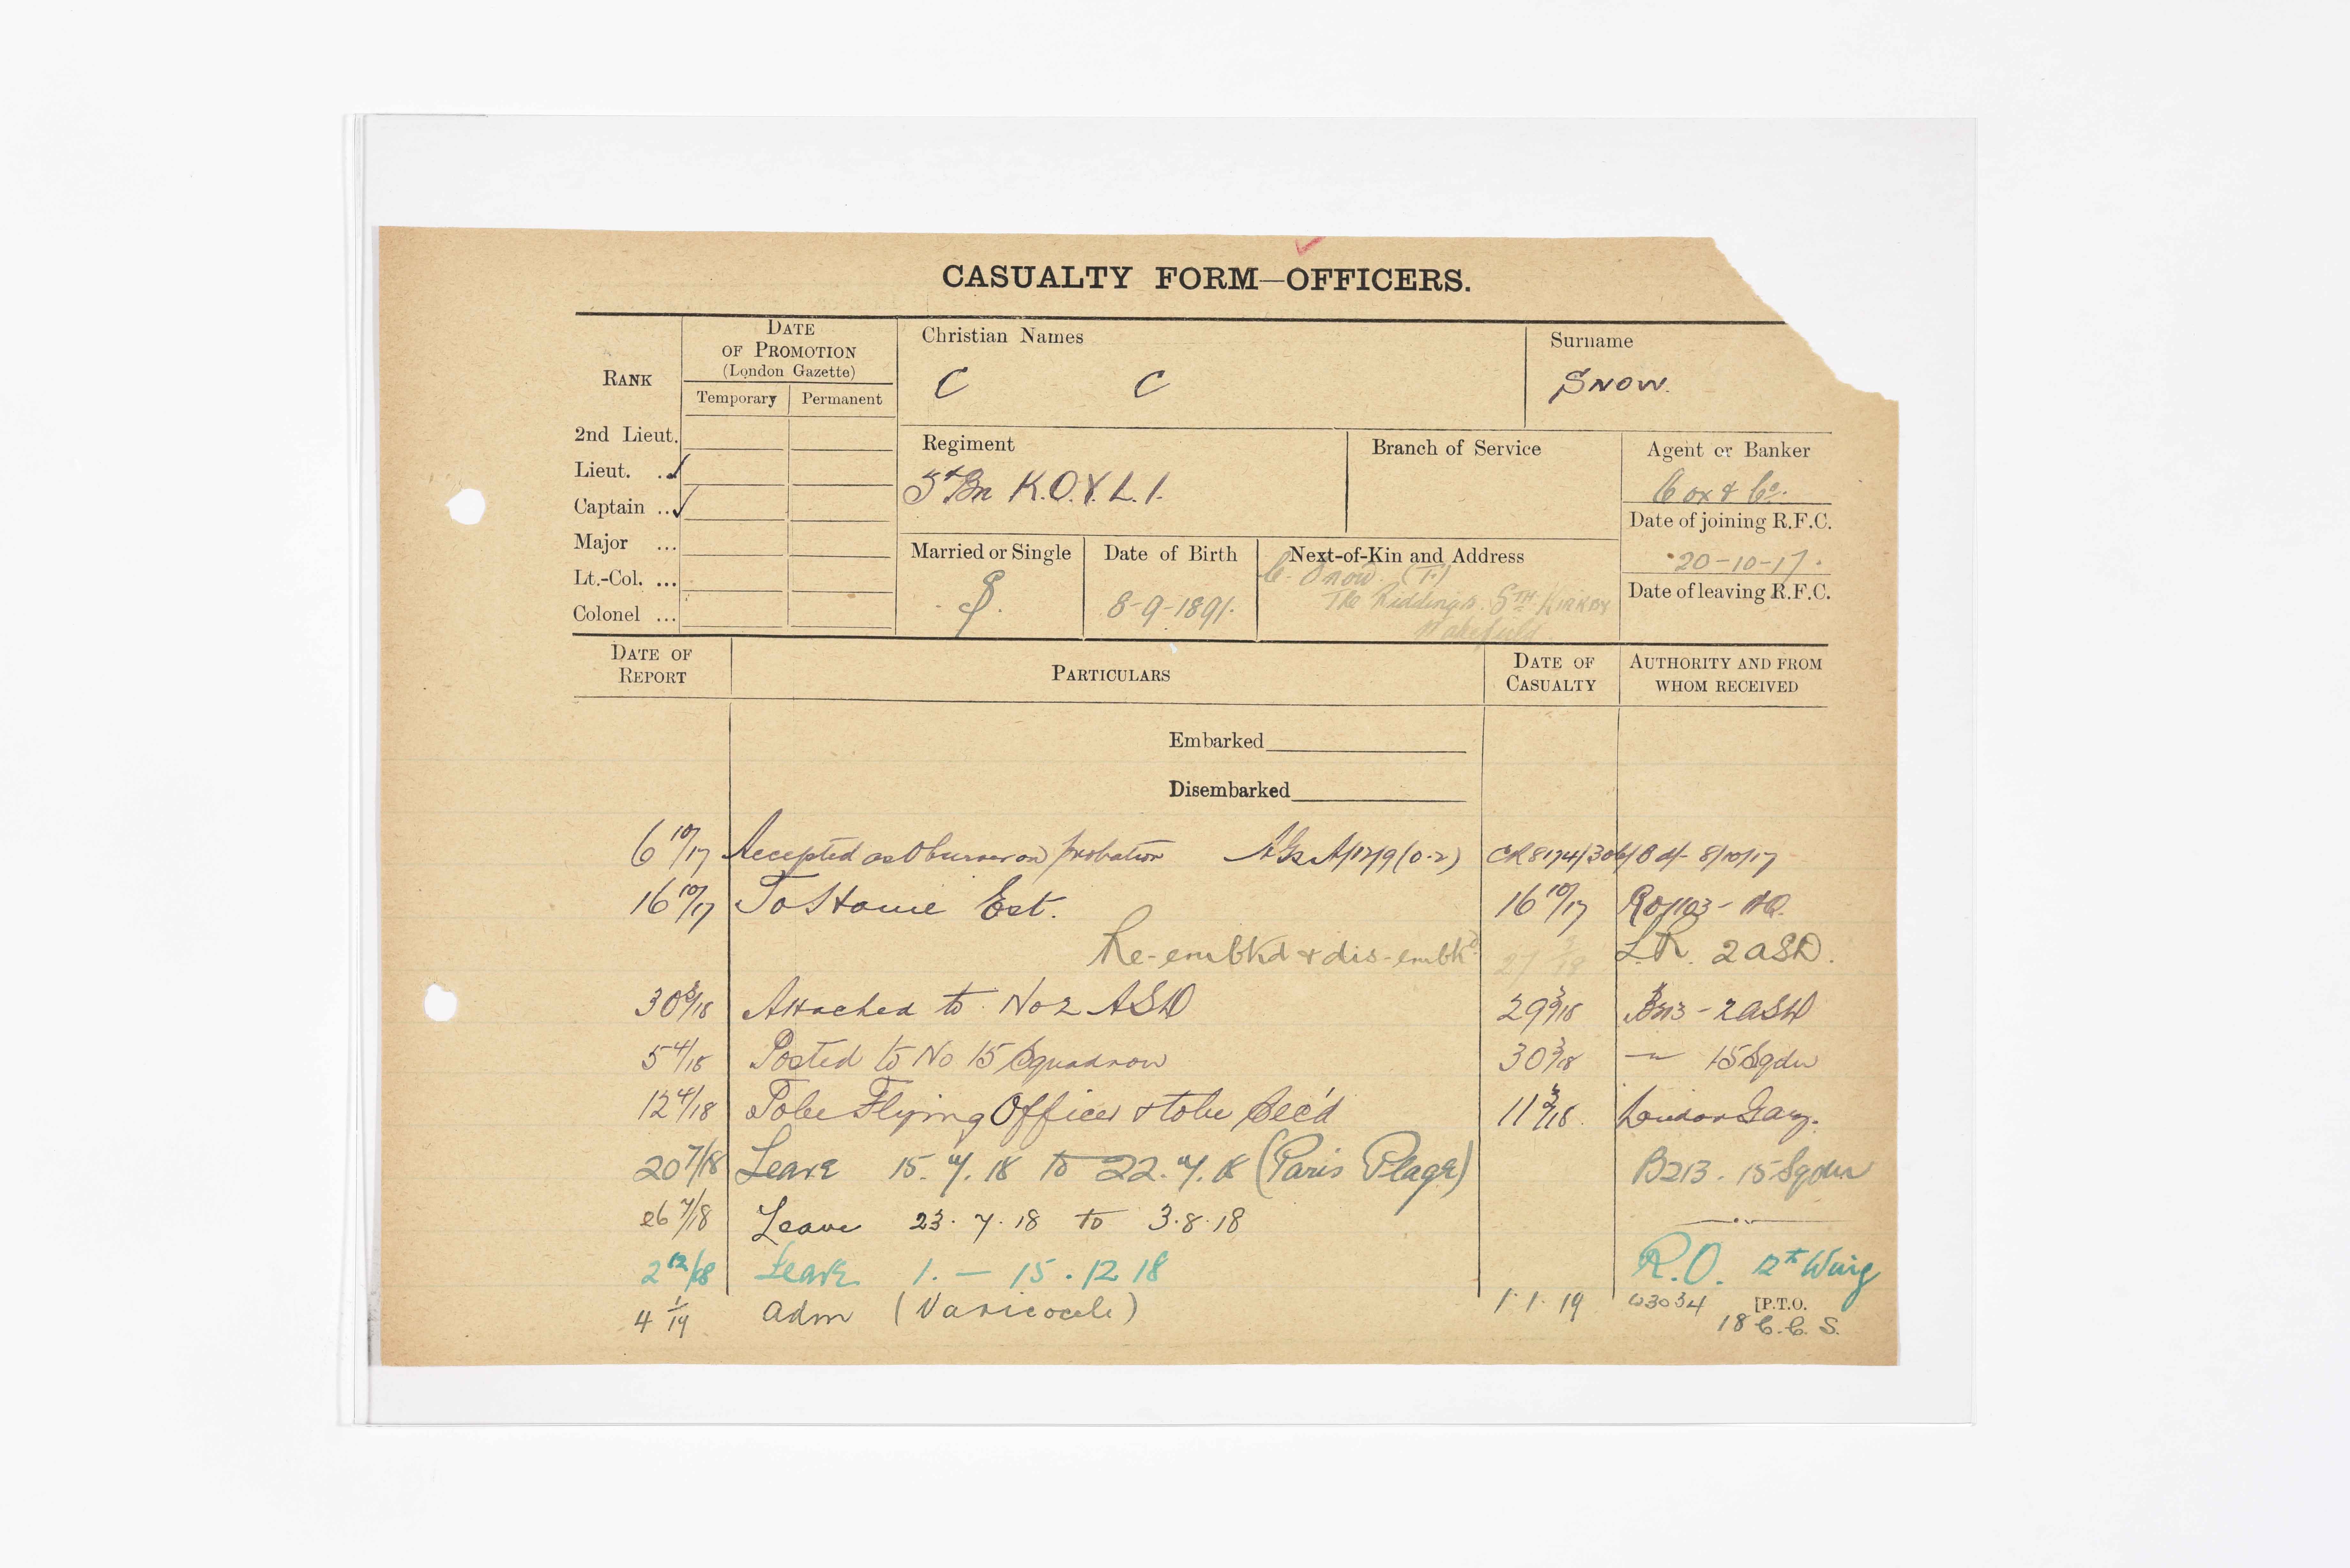 CASUALTY FORM—OFFICERS.
RANK
DATE OF PROMOTION (London Gazette)
Temporary Permanent
Christian Names
C C
Surname
SNOW.
2nd Lieut.
Lieut. ..✓
Captain ..✓
Major ...
Lt.-Col. ...
Colonel ...
Regiment
Bn K.O.Y.L.I.
Branch of Service
Agent or Banker
Cox & Co.
Date of joining R.F.C.
20-10-17.
Date of leaving R.F.C.
Married or Single
S.
Date of Birth
8-9-1891.
Next-of-Kin and Address
C. Snow. (F.)
The Riddings. STH KIRKBY
Wakefield
DATE OF REPORT
PARTICULARS
DATE OF CASUALTY
AUTHORITY AND FROM WHOM RECEIVED
Embarked
Disembarked
6 10/17 Accepted as Observer on probation 8/10/17
16 10/17 To Home Est. 16 10/17 HQ.
Re-embkd & dis-embkd 27 3/18 L.R. 2 ASD.
30 3/18 Attached to No 2 ASD 29 3/18 B213 - 2 ASD
5 4/18 Posted to No 15 Squadron 30 3/18 — " — 15 Sqdn
12 4/18 To be Flying Officer & to be Sec'd 11 3/18. London Gaz.
20 7/18 Leave 15.7.18 to 22.7.18 (Paris Plage) B213. 15 Sqdn
26 7/18 Leave 23.7.18 to 3.8.18 — " —
2 12/18 Leave 1. — 15.12 18 R.O. 12th Wing
4 1/19 adm (Varicocele) 1.1.19 W3034
[P.T.O.
18 C.C.S.